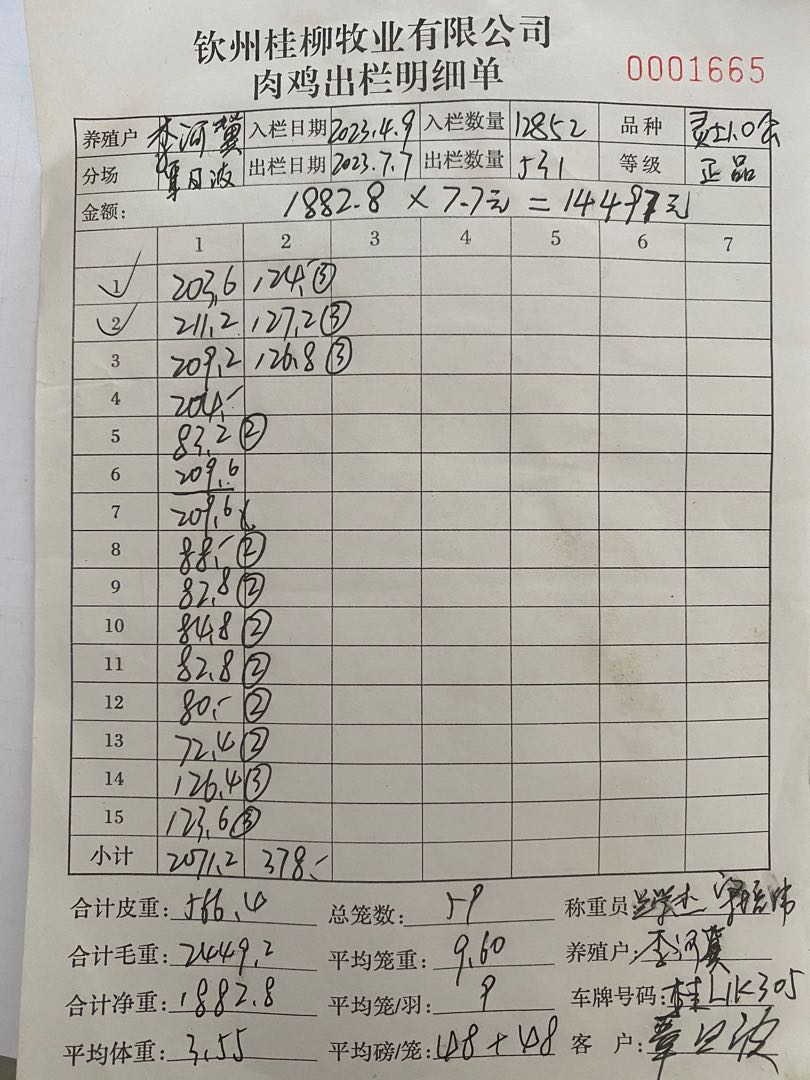 钦州桂柳牧业有限公司
肉鸡出栏明细单 0001665
养殖户 李河冀 入栏日期 2023.4.9 入栏数量 12852 品种
分场 覃日波 出栏日期 2023.7.7 出栏数量 531 等级 正品
金额: 1882.8 × 7.7元 = 14497元
1 2 3 4 5 6 7
1 203.6 124.- ③
2 211.2 127.2 ③
3 209.2 126.8 ③
4 204.-
5 83.2 ②
6 209.6
7 209.6
8 88.- ②
9 82.8 ②
10 84.8 ②
11 82.8 ②
12 80.- ②
13 72.4 ②
14 126.4 ③
15 123.6 ③
小计 2071.2 378.-
合计皮重: 566.4 总笼数: 59 称重员:
合计毛重: 2449.2 平均笼重: 9.60 养殖户: 李河冀
合计净重: 1882.8 平均笼/羽: 9 车牌号码: 桂L1K305
平均体重: 3.55 平均磅/笼: 48+48 客 户: 覃日波